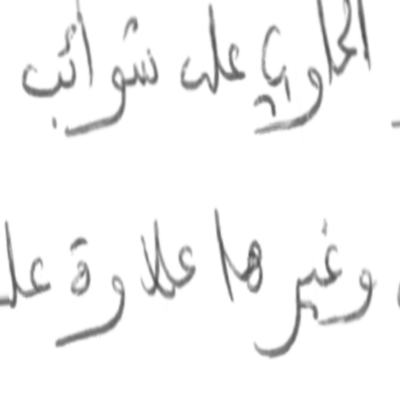 الحاوي على شوائب
وغيرها علاوة على